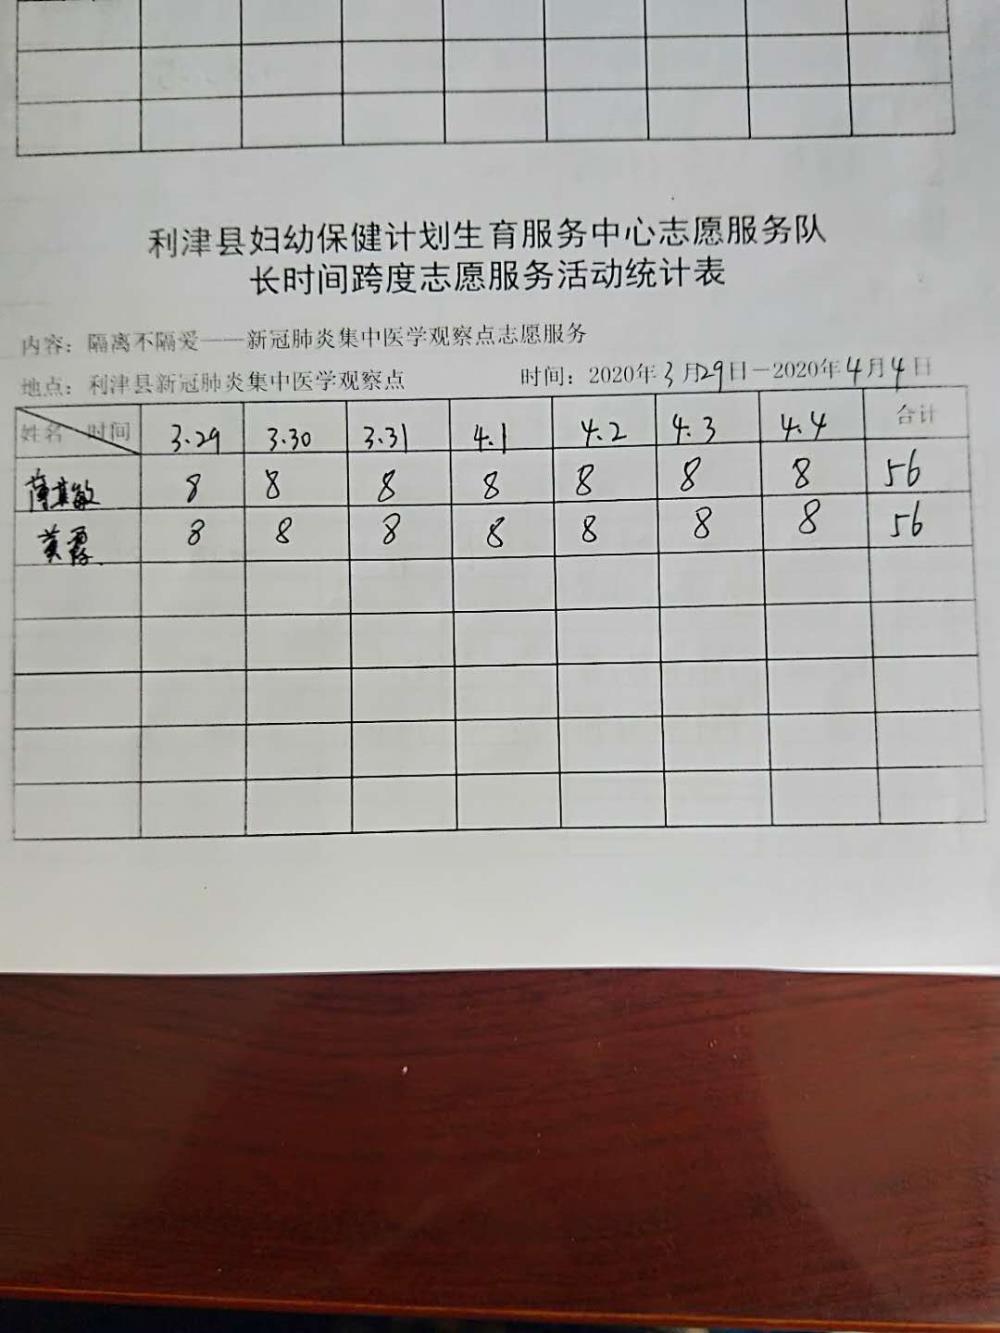 利津县妇幼保健计划生育服务中心志愿服务队
长时间跨度志愿服务活动统计表
内容：隔离不隔爱——新冠肺炎集中医学观察点志愿服务
地点：利津县新冠肺炎集中医学观察点 时间：2020年3月29日－2020年4月4日
姓名 时间 3.29 3.30 3.31 4.1 4.2 4.3 4.4 合计
薄其敏 8 8 8 8 8 8 8 56
黄霞 8 8 8 8 8 8 8 56